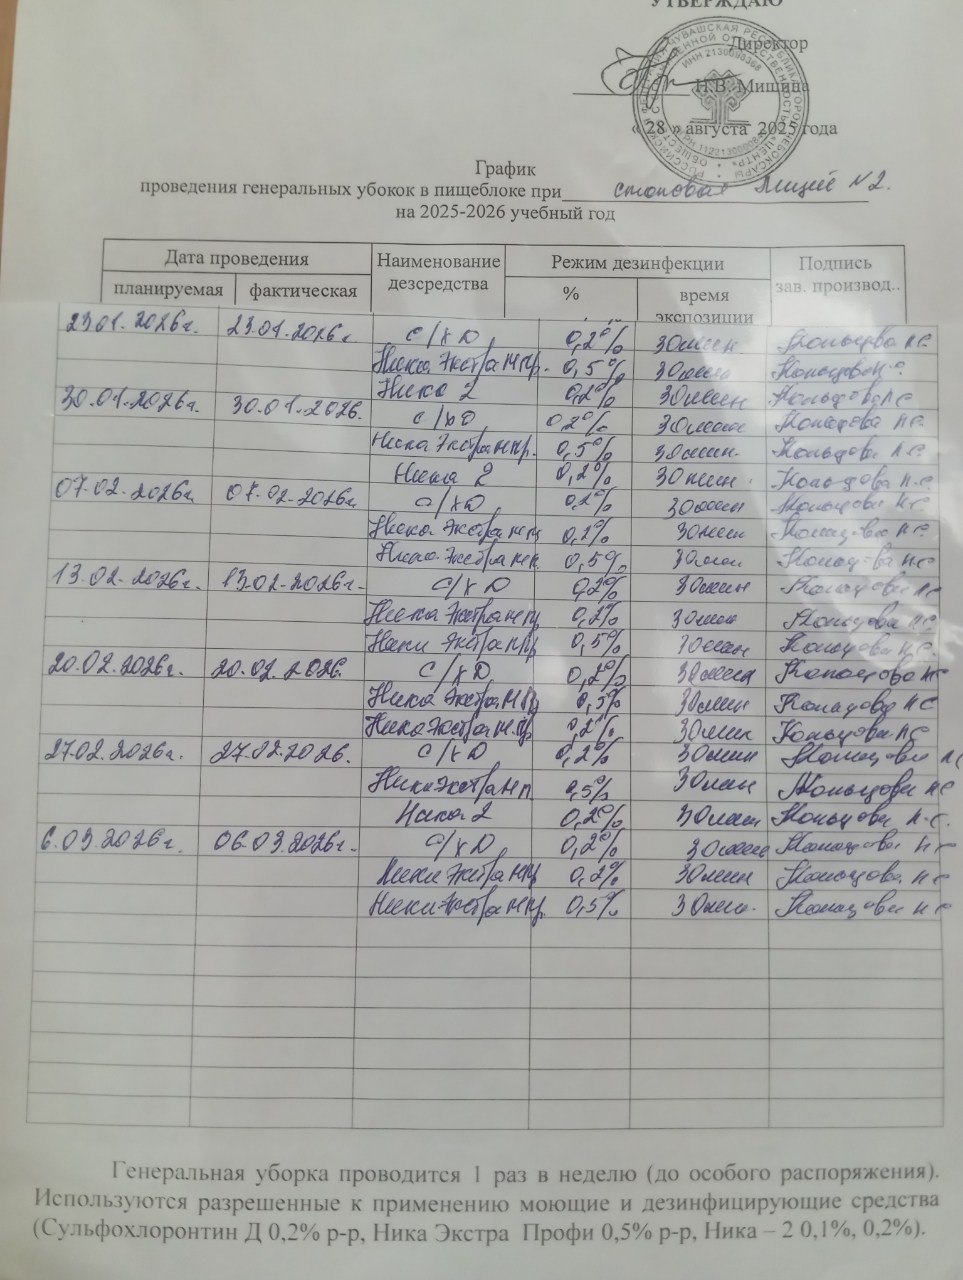 УТВЕРЖДАЮ
Директор
Н.В. Мишина
« 28 » августа 2025 года
График
проведения генеральных убокок в пищеблоке при столовая Лицей №2.
на 2025-2026 учебный год
Дата проведения Наименование дезсредства Режим дезинфекции Подпись зав. производ..
планируемая фактическая % время экспозиции
23.01.2026г. 23.01.2026г. С/ХД 0,2% 30мин Кольцова НС
Ника Экстра М пр. 0,5% 30мин Кольцова Н.С.
Ника 2 0,2% 30мин Кольцова НС
30.01.2026г. 30.01.2026. С/ХД 0,2% 30мин Кольцова НС.
Ника Экстра М пр. 0,5% 30мин. Кольцова Н.С.
Ника 2 0,2% 30мин. Кольцова Н.С.
07.02.2026г. 07.02.2026г. С/ХД 0,2% 30мин Кольцова Н.С.
Ника Экстра 0,2% 30мин Кольцова НС
Ника Экстра 0,5% 30мин Кольцова НС
13.02.2026г. 13.02.2026г. С/ХД 0,2% 30мин Кольцова НС
Ника Экстра 0,2% 30мин Кольцова НС
Ника Экстра 0,5% 30мин Кольцова Н.С.
20.02.2026г. 20.02.2026. С/ХД 0,2% 30мин Кольцова НС
Ника Экстра 0,5% 30мин Кольцова НС
Ника Экстра 0,2% 30мин Кольцова НС
27.02.2026г. 27.02.2026. С/ХД 0,2% 30мин Кольцова НС
Ника Экстра 0,5% 30мин Кольцова НС
Ника 2 0,2% 30мин Кольцова Н.С.
6.03.2026г. 06.03.2026г. С/ХД 0,2% 30мин Кольцова НС
Ника Экстра 0,2% 30мин Кольцова НС
Ника Экстра 0,5% 30мин. Кольцова НС
Генеральная уборка проводится 1 раз в неделю (до особого распоряжения).
Используются разрешенные к применению моющие и дезинфицирующие средства
(Сульфохлоронтин Д 0,2% р-р, Ника Экстра Профи 0,5% р-р, Ника – 2 0,1%, 0,2%).